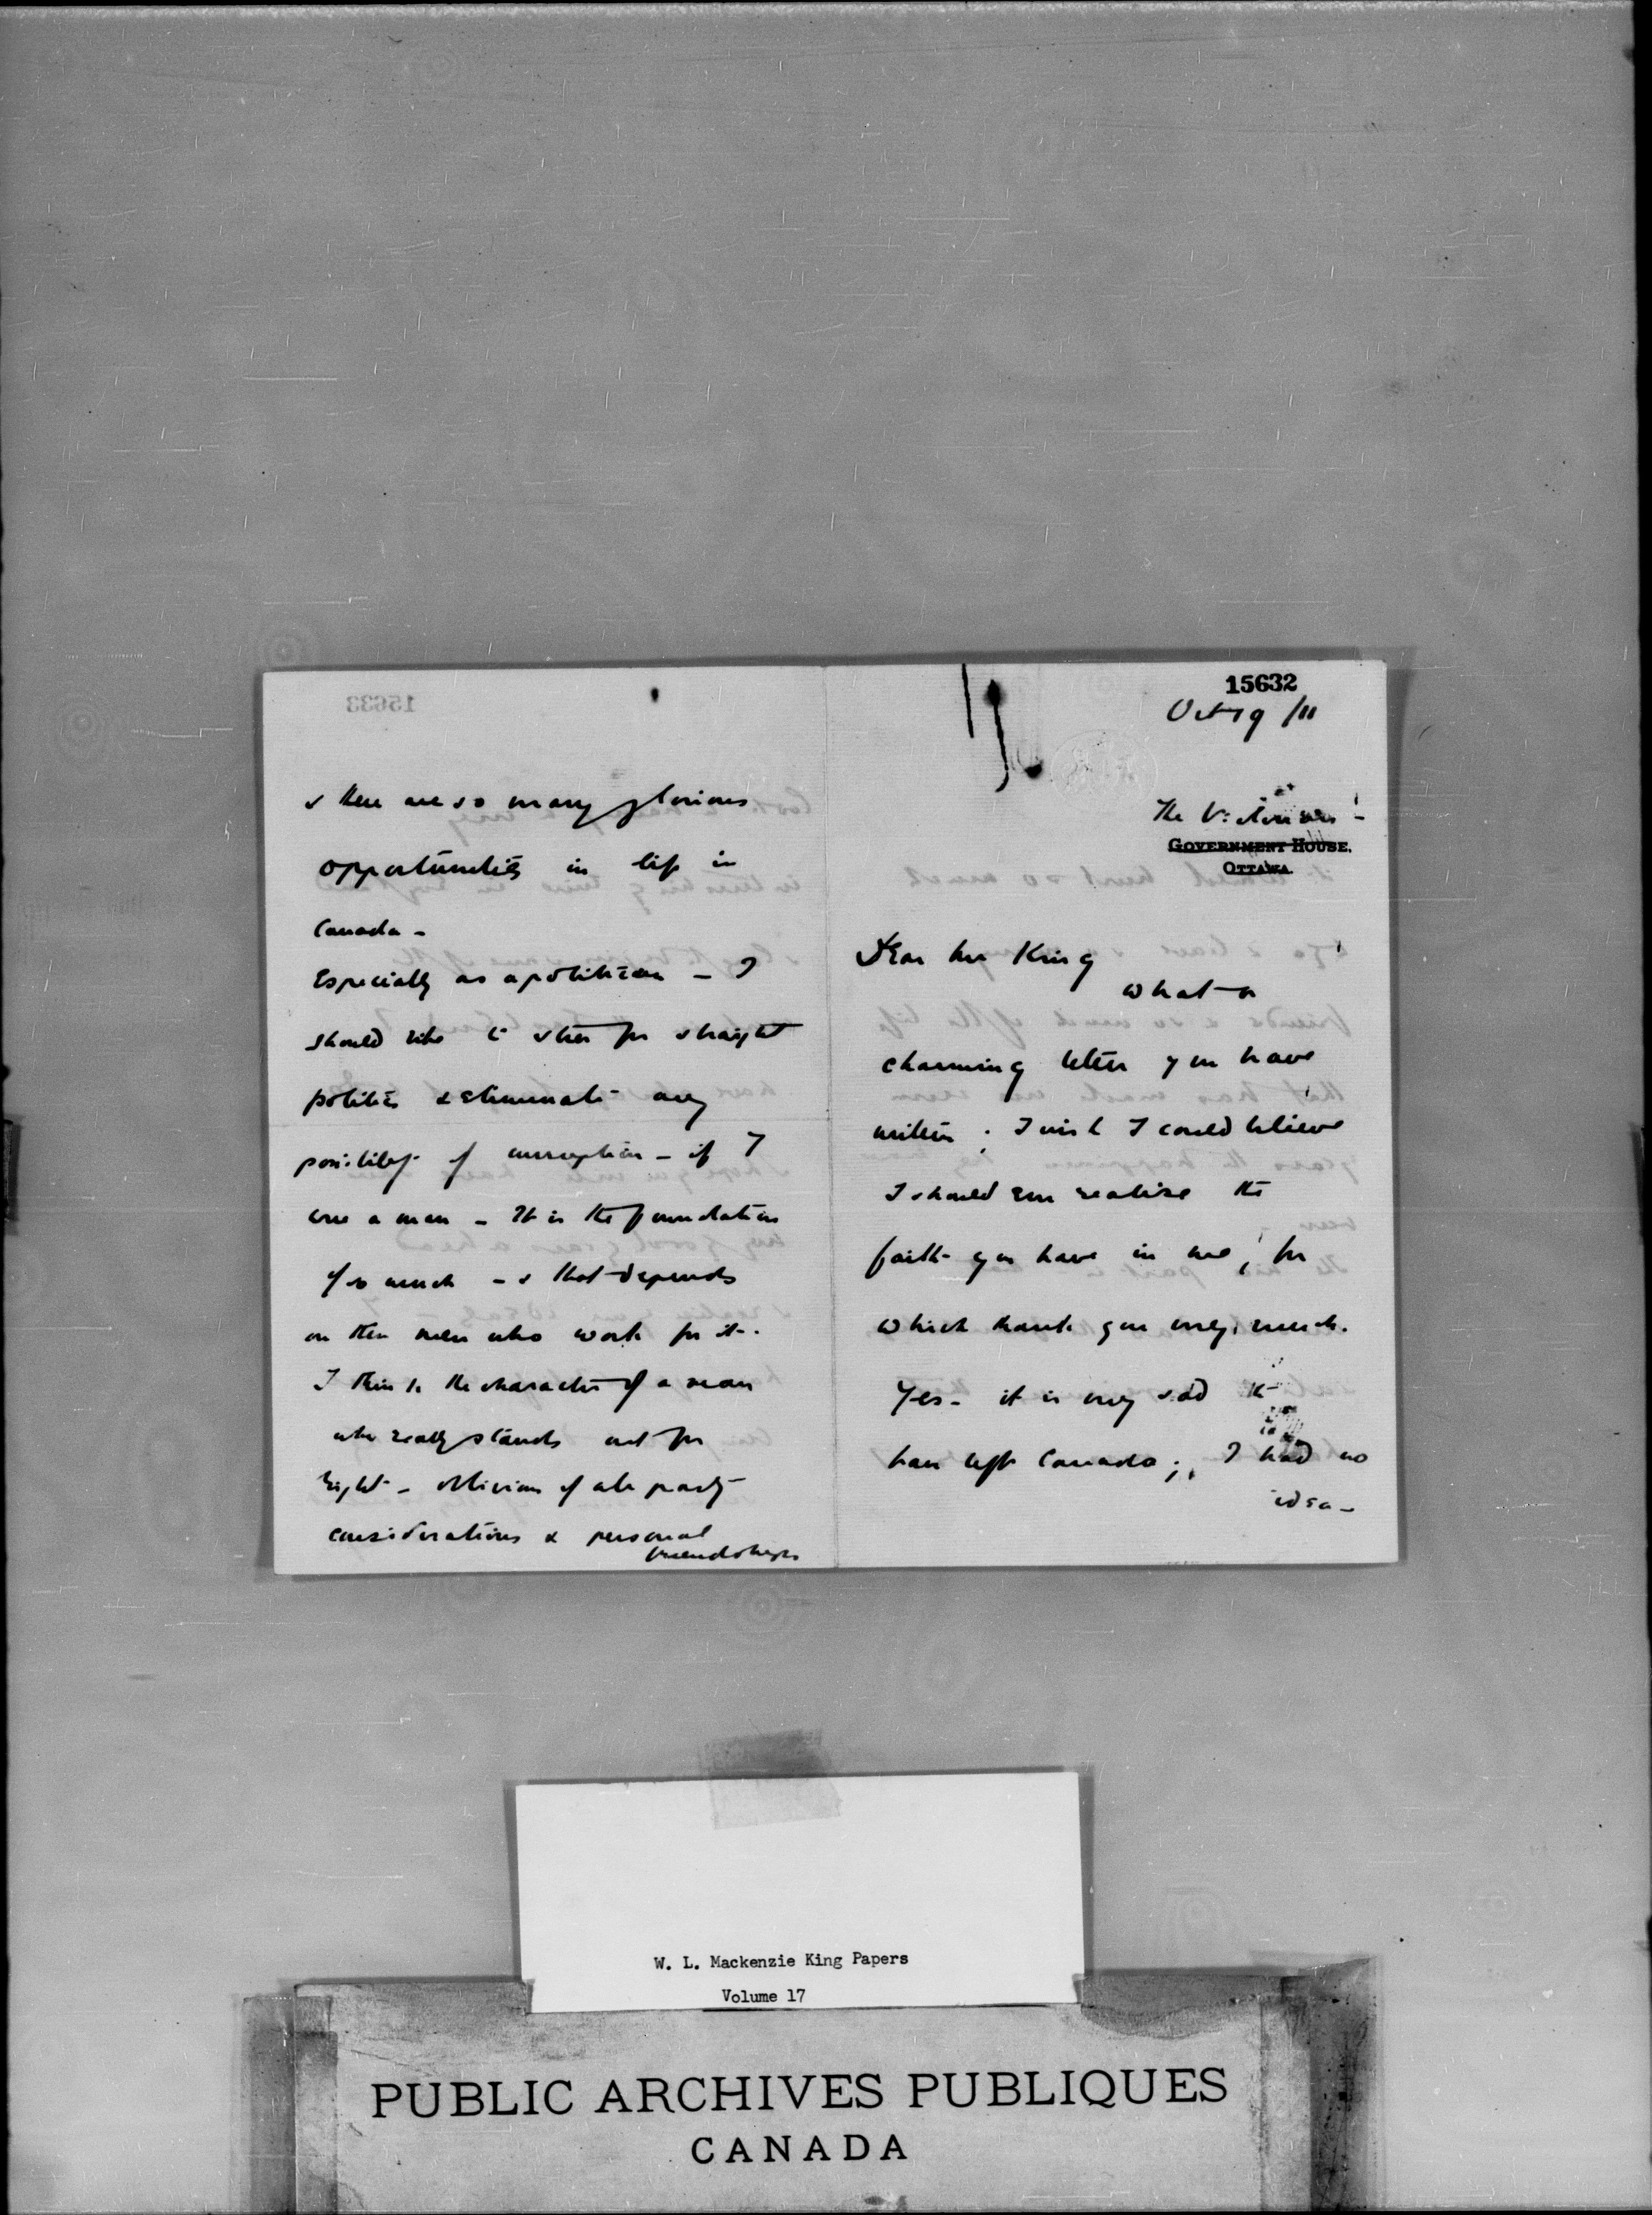 15632
Oct 19 /11
The Victorian -
GOVERNMENT HOUSE.
OTTAWA.
Dear Mr King
what a
charming letter you have
written; I wish I could believe
I should ever realise the
faith you have in me, for
which thank you very much.
Yes - it is very sad to
have left Canada; I had no
idea -
15633
& there are so many glorious
opportunities in life in
Canada -
Especially as a politician - I
should like to steer for straight
politics & eliminate any
possibility of corruption - if I
were a man - It is the foundation
of so much - & that depends
on the men who work for it.
I think the character of a man
who really stands out for
right - oblivious of all party
considerations & personal
friendships
W. L. Mackenzie King Papers
Volume 17
PUBLIC ARCHIVES PUBLIQUES
CANADA